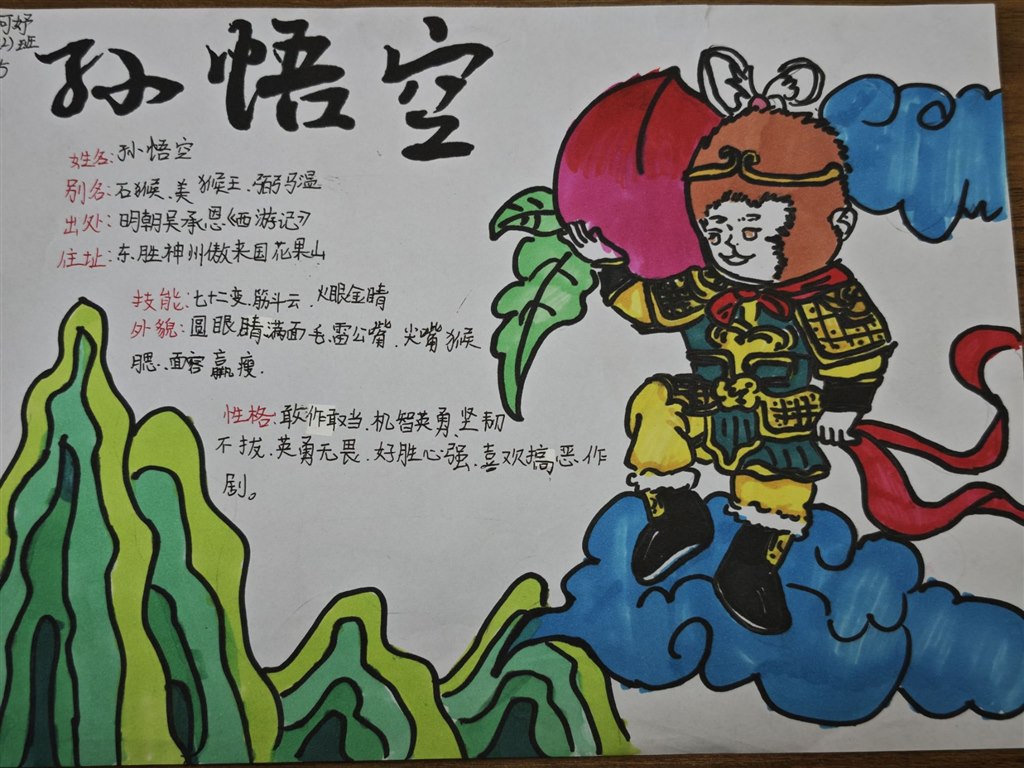 可妤
2)班
5
孙悟空
姓名:孙悟空
别名:石猴、美猴王、弼马温
出处:明朝吴承恩《西游记》
住址:东胜神州傲来国花果山
技能:七十二变.筋斗云.火眼金睛
外貌:圆眼睛.满面毛.雷公嘴.尖嘴猴
腮.面容羸瘦.
性格:敢作敢当、机智英勇坚韧
不拔、英勇无畏、好胜心强、喜欢搞恶作
剧。